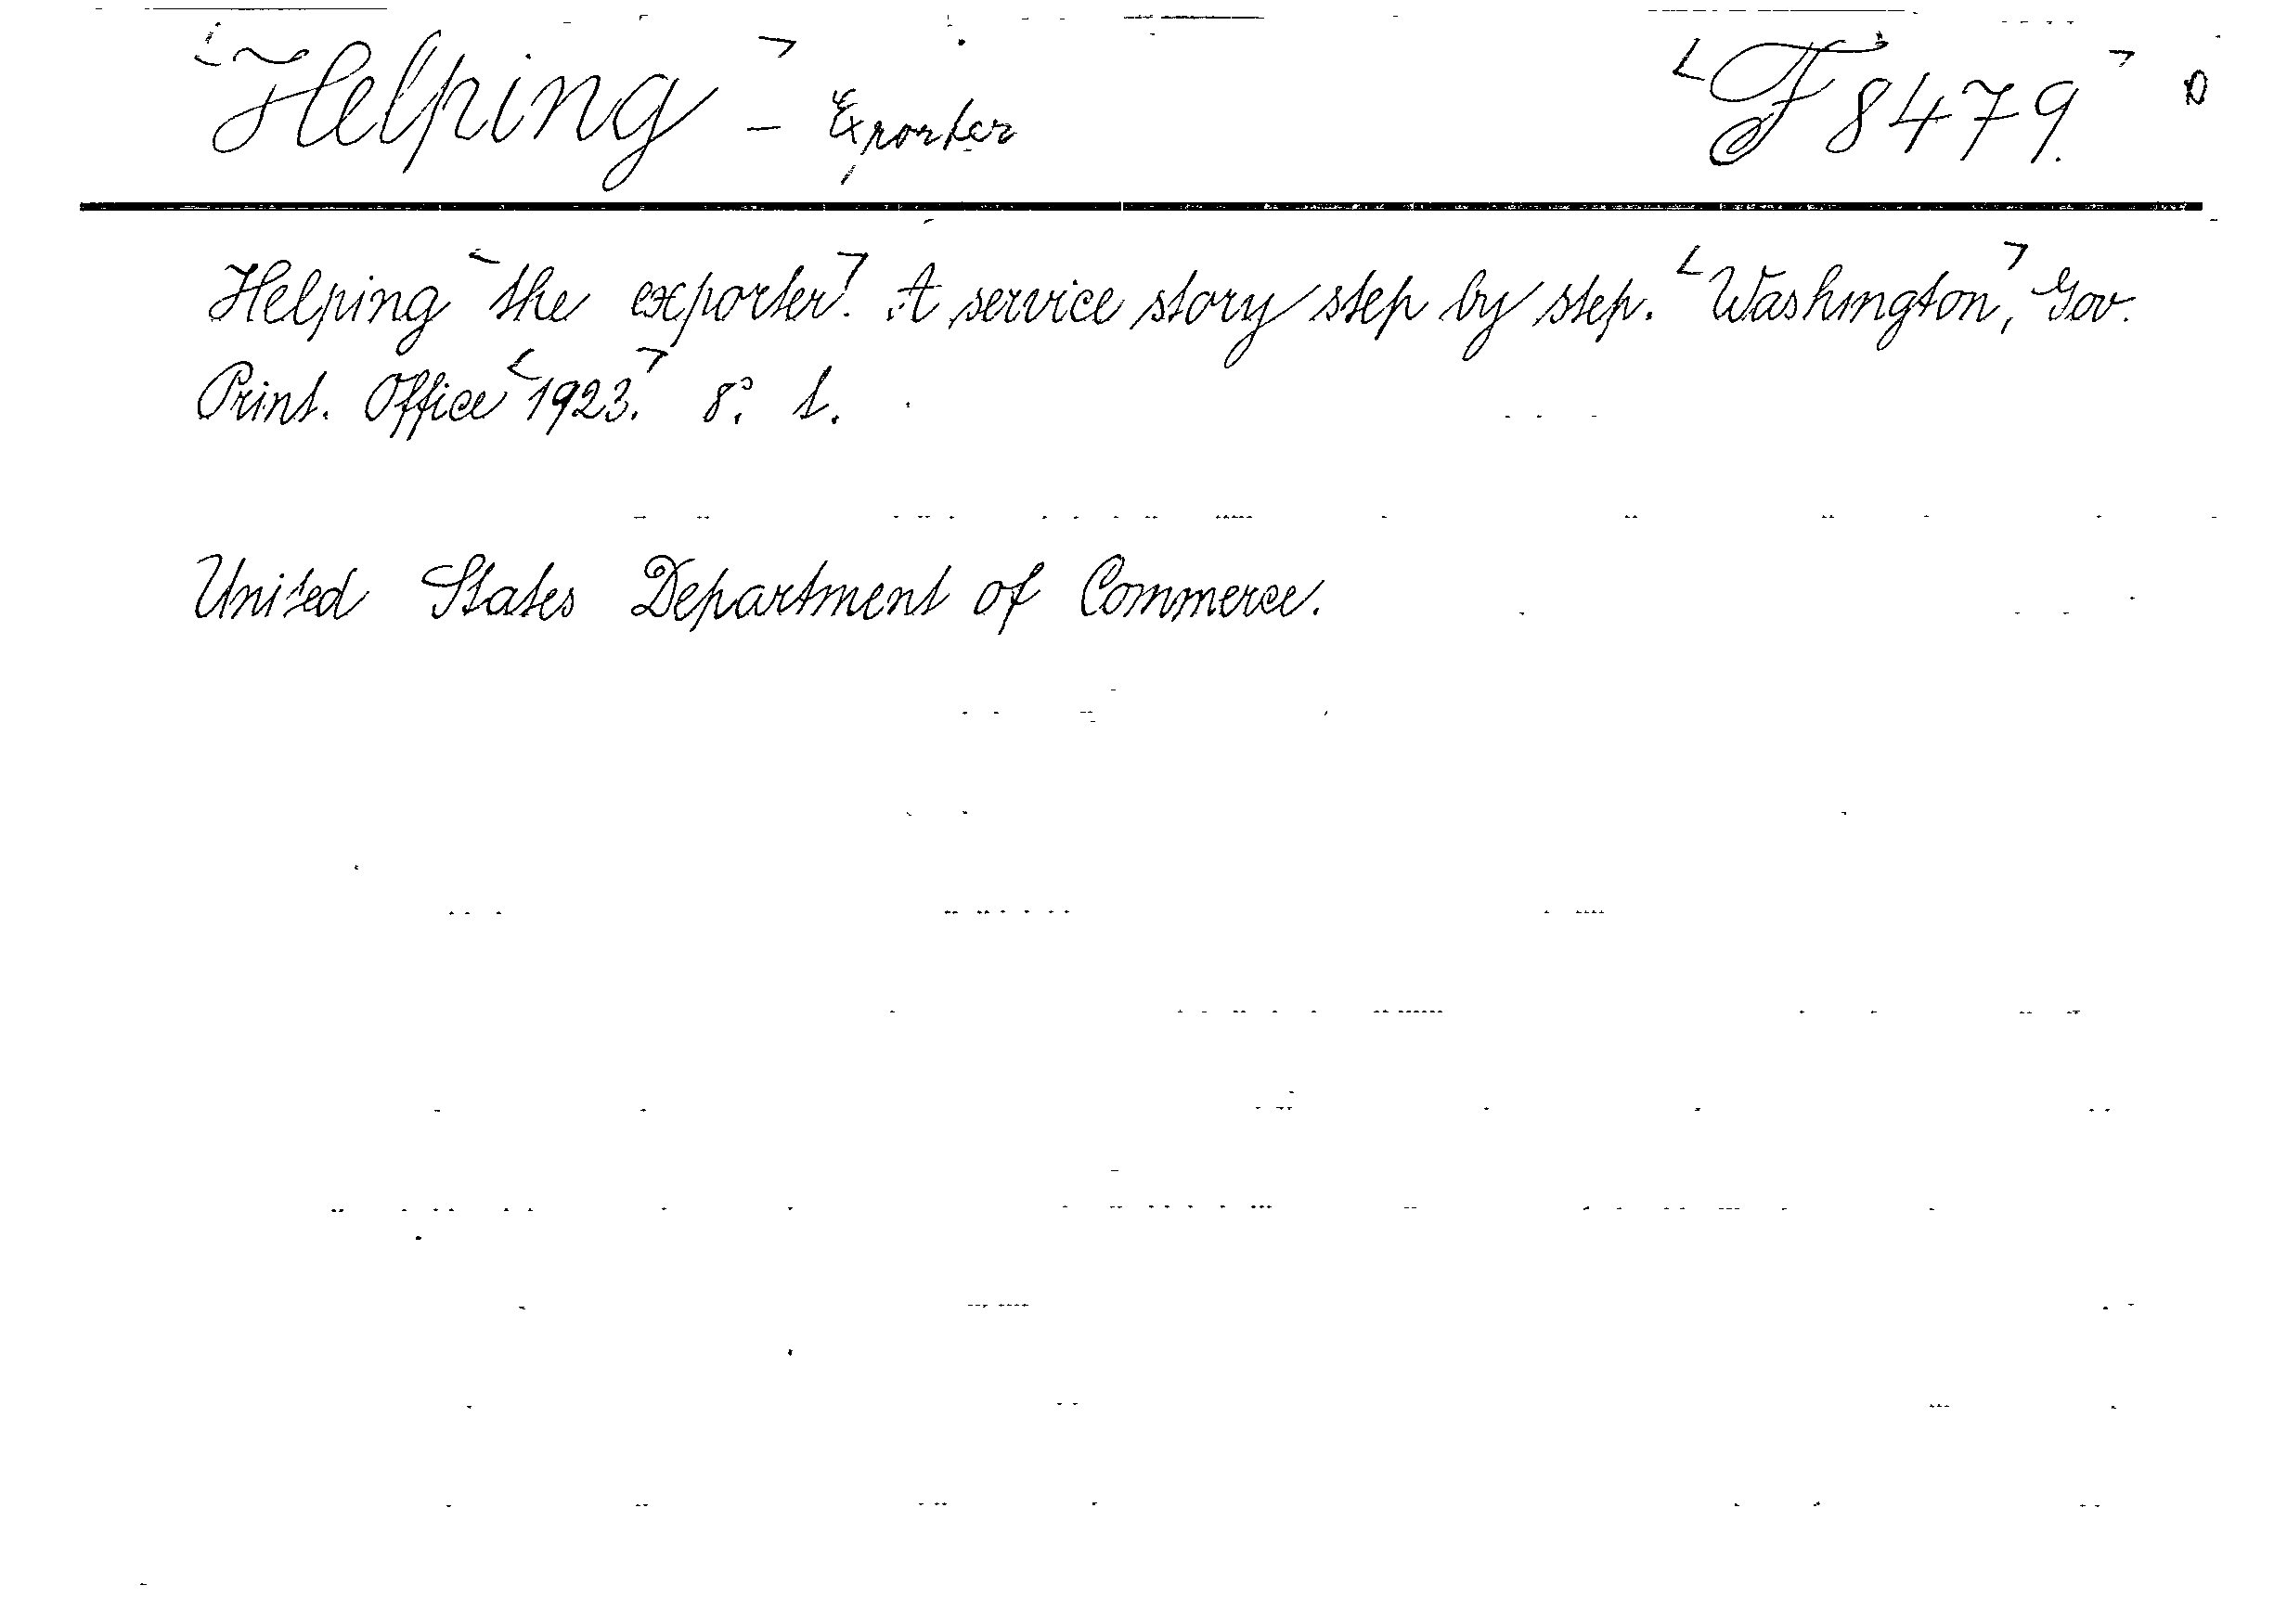 Helping - Exporter F 8479. D
Helping the exporter. A service story step by step. Washington, Gov.
Print. Office 1923. 8°. t.
United States Department of Commerce.